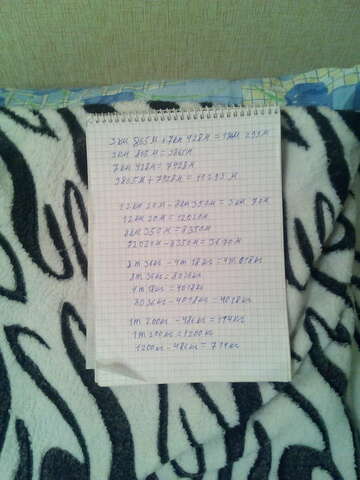 3км 865м + 7км 428м = 11км 293м
3км 865м = 3865м
7км 428м = 7428м
3865м + 7428м = 11293м
12км 20м - 8км 350м = 3км 70м
12км 20м = 12020м
8км 350м = 8350м
12020м - 8350м = 3670м
8т 36кг - 4т 18кг = 4т 018кг
8т 36кг = 8036кг
4т 18кг = 4018кг
8036кг - 4018кг = 4018кг
1т 200кг - 486кг =
1т 200кг = 1200кг
1200кг - 486кг = 714кг